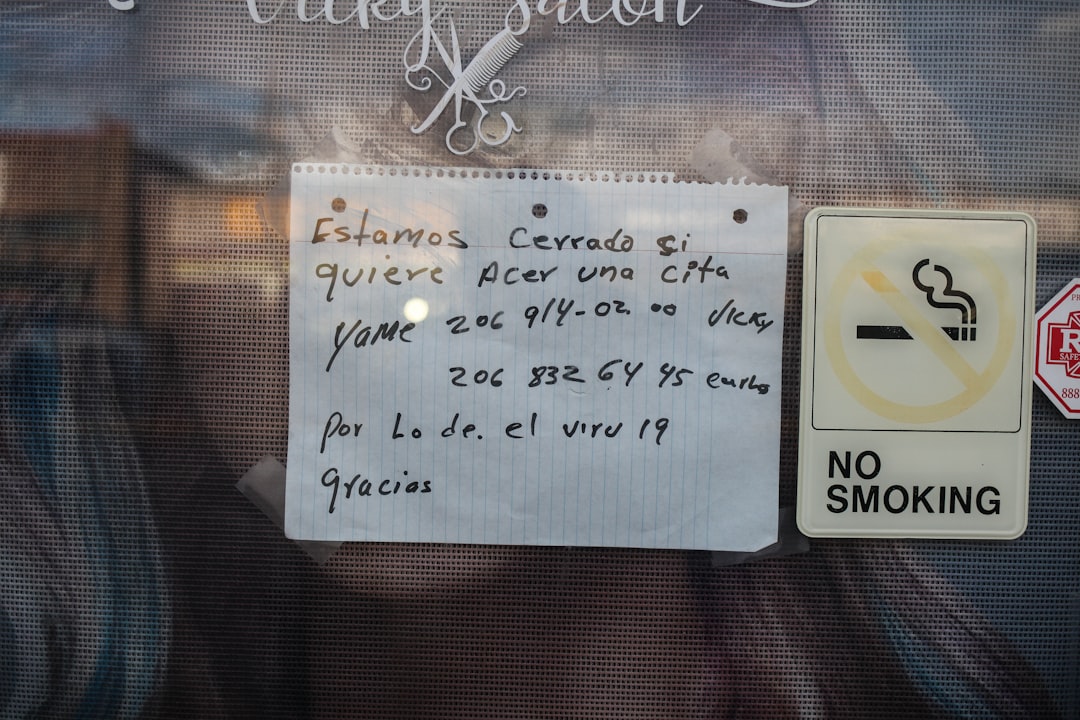 Vicky Salon
Estamos Cerrado si
quiere Acer una cita
Yame 206 914-02 00 Vicky
206 832 64 45
por Lo de. el viru 19
gracias
NO
SMOKING
888